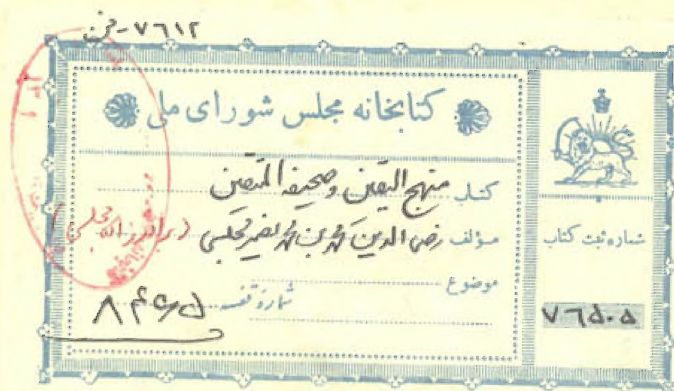 ۷۶۱۲
کتابخانه مجلس شورای ملی
کتاب منهج الیقین و صحیفه المتقین
مؤلف رضی الدین محمد بن محمد نصیر مجلسی (برادرزاده مجلسی)
موضوع
شماره قفسه
شماره ثبت کتاب
۷۶۵۰۵